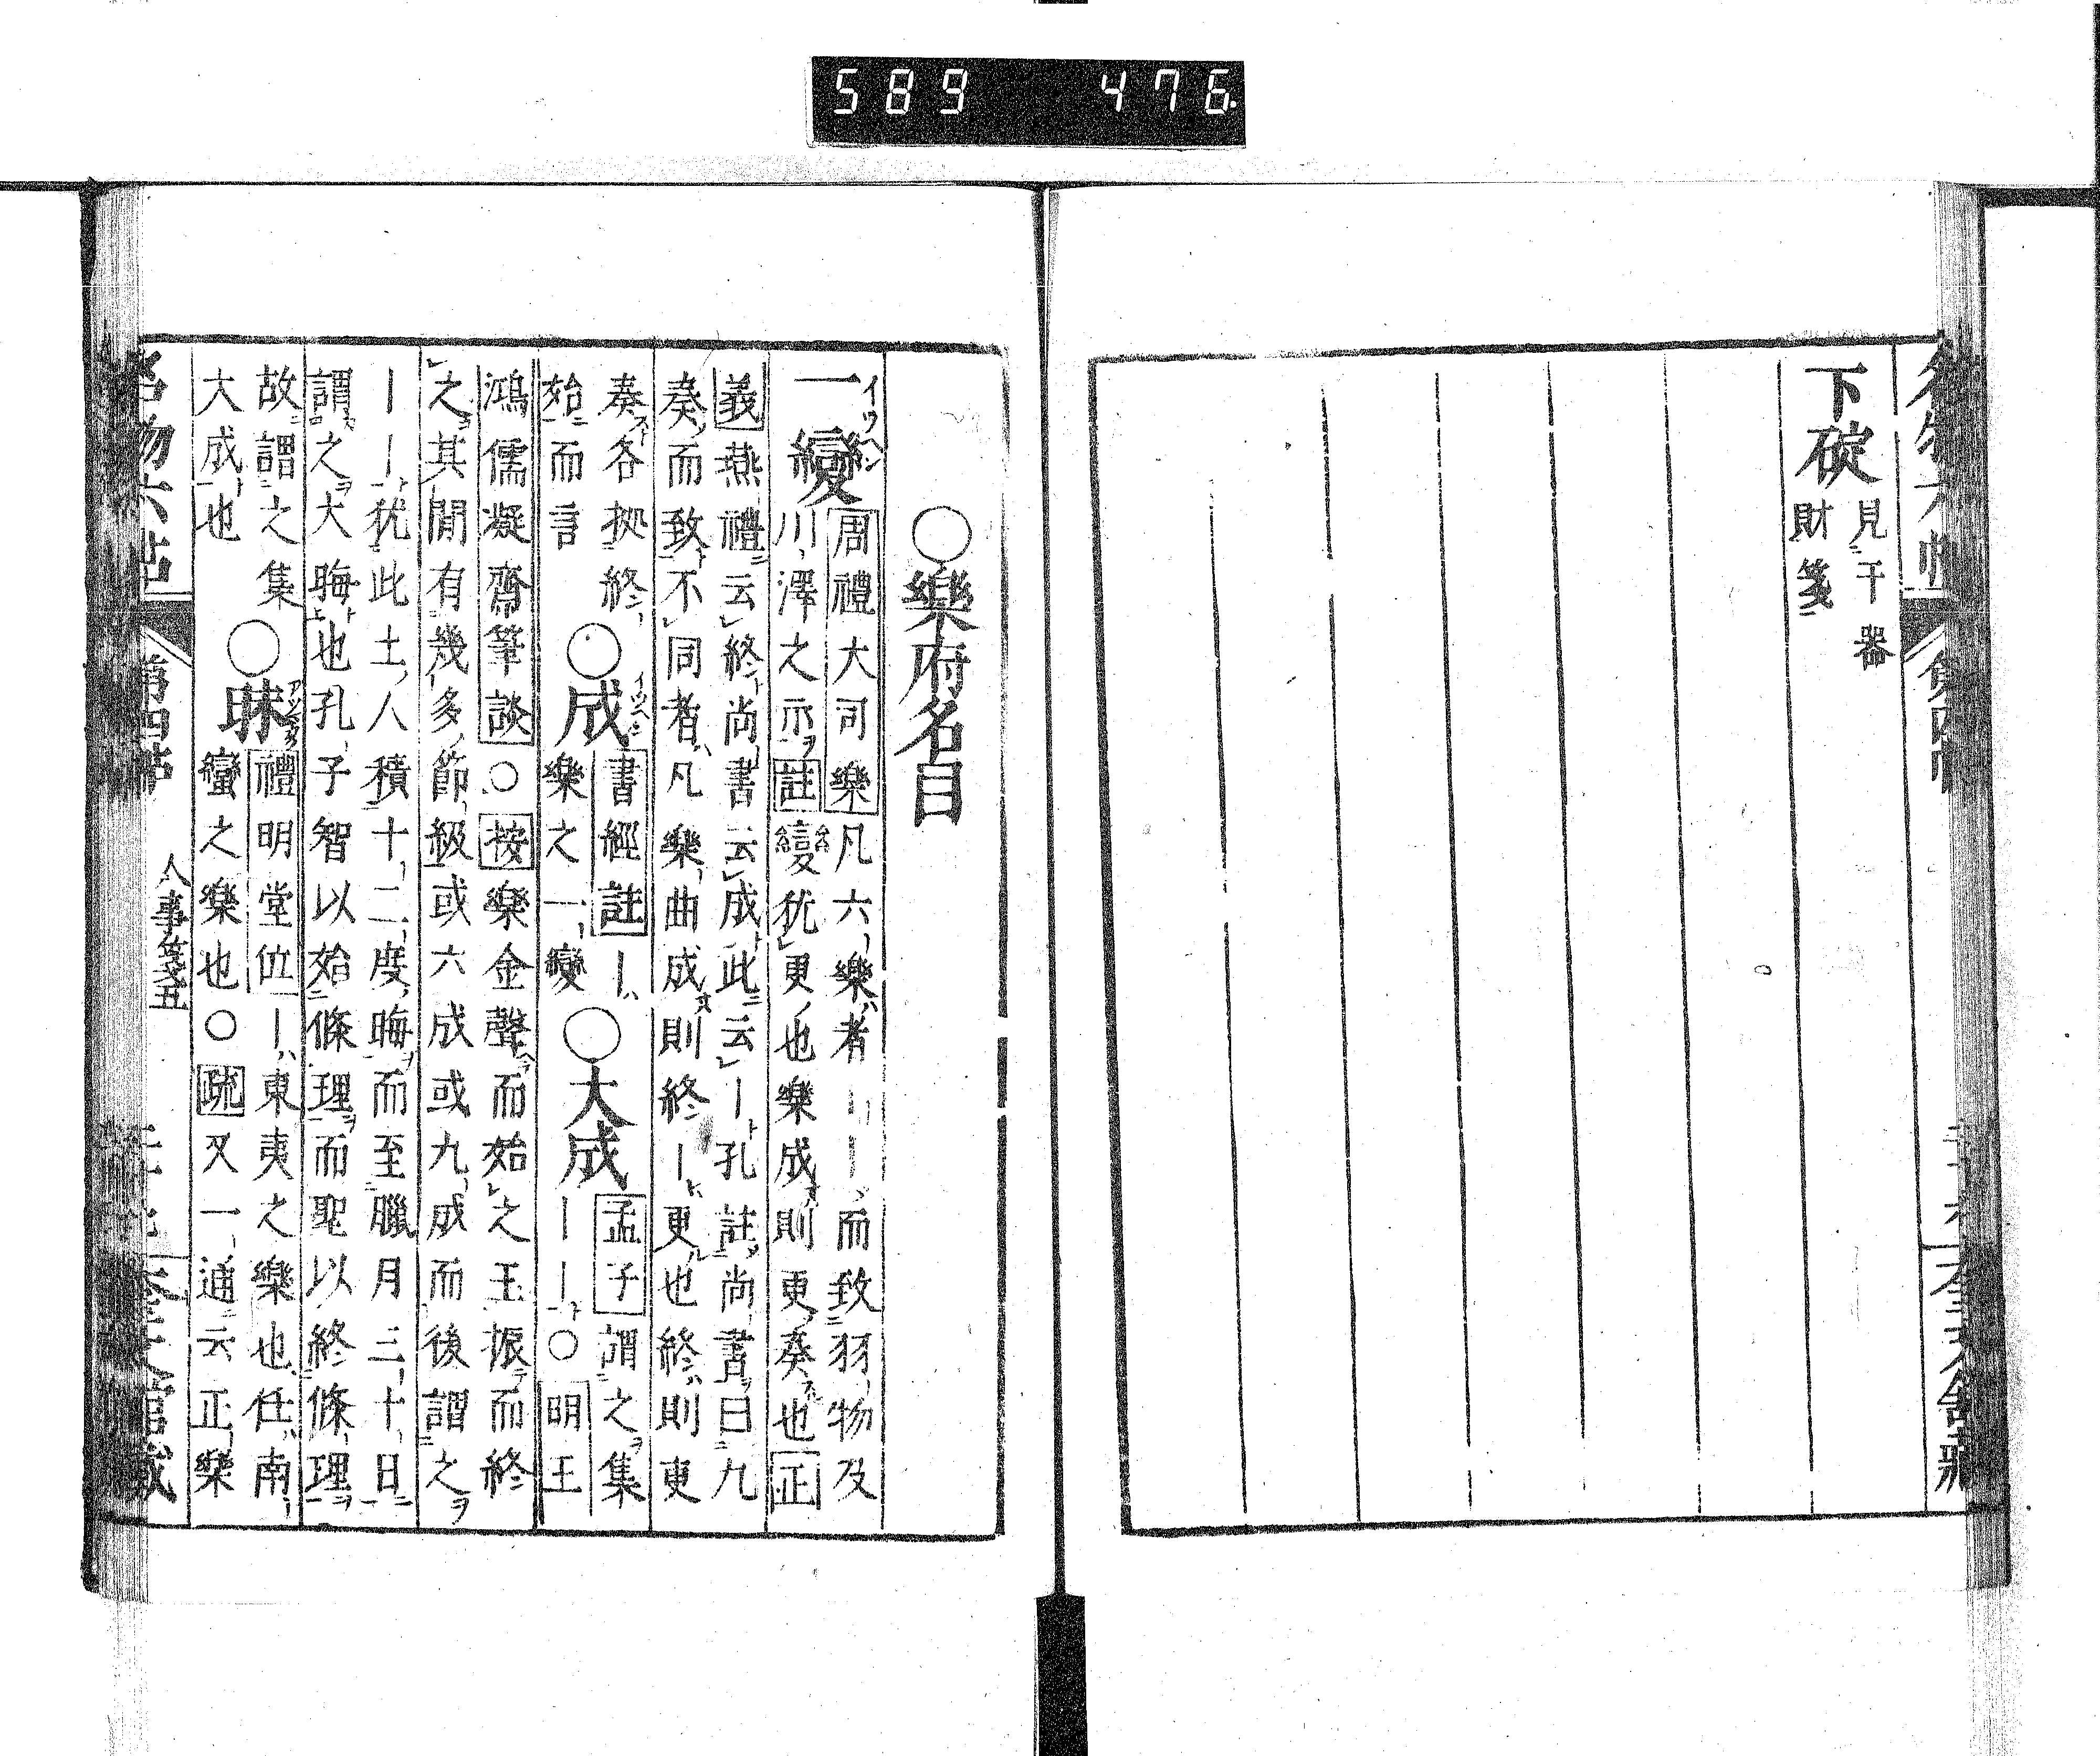 589 476
下碇 見干器
財箋
○樂府名目
一變 イツヘン
周禮大司樂凡六樂者｜｜而致羽物及
川澤之示註變猶更也樂成則更奏也正
義燕禮云終尚書云成此云｜孔註尚書曰九
奏而致不同者凡樂曲成則終｜更也終則更
奏各拠終
始而言
○成
書經註｜
樂之一變
○大成
孟子謂之集
｜｜○明王
鴻儒凝齋筆談○按樂金聲而始之玉振而終
之其間有幾多節級或六成或九成而後謂之
｜｜猶此土人積十二度晦而至臘月三十日
謂之大晦也孔子智以始條理而聖以終條理
故謂之集
大成也
○昧
禮明堂位｜東夷之樂也任南
蠻之樂也○疏又一通云正樂
名物六帖 第四帖 人事箋五